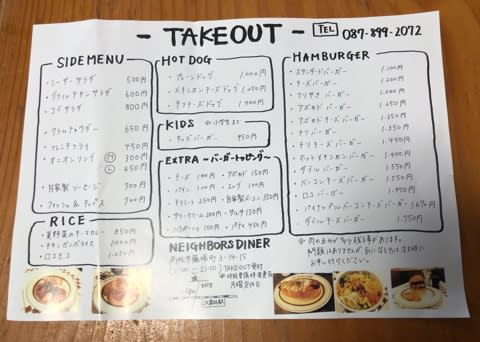 - TAKEOUT -
TEL 087-899-2072
SIDE MENU
・シーザーサラダ 500円
・グリルチキンサラダ 600円
・コブサラダ 800円
・クラムチャウダー 650円
・フレンチフライ 450円
・オニオンリング Ⓜ 300円
Ⓛ 450円
・自家製ソーセージ 700円
・フィッシュ&チップス 700円
RICE
・夏野菜のキーマカレー 850円
・チキンガンボライス 1,000円
・ロコモコ 1,050円
HOT DOG
・プレーンドッグ 1,000円
・メキシカンチーズドッグ 1,250円
・チリチーズドッグ 1,400円
KIDS 中小学生まで
・キッズバーガー 450円
EXTRA ~バーガートッピング~
・チーズ 100円 ・アボカド 150円
・パイン 100円 ・エッグ 100円
・チリミート 250円 ・自家製ベーコン 350円
・サワークリーム 200円 ・サルサ 150円
・ハラペーニョ 100円 ・パティ
NEIGHBORS DINER
3-14-15
(11:00 ~ 21:00) TAKEOUT受付
月曜定休日
HAMBURGER
・スタンダードバーガー 1.100円
・チーズバーガー 1.200円
・マリブバーガー
・アボカドバーガー
・アボカドチーズバーガー 1.350円
・チリバーガー
・チリチーズバーガー 1.350円
・ホットメキシカンバーガー 1.400円
・ダブルバーガー 1.550円
・ベーコンチーズバーガー
・ロコバーガー 1.450円
・パイナップルベーコンチーズバーガー
・ダブルチーズバーガー 1.750円